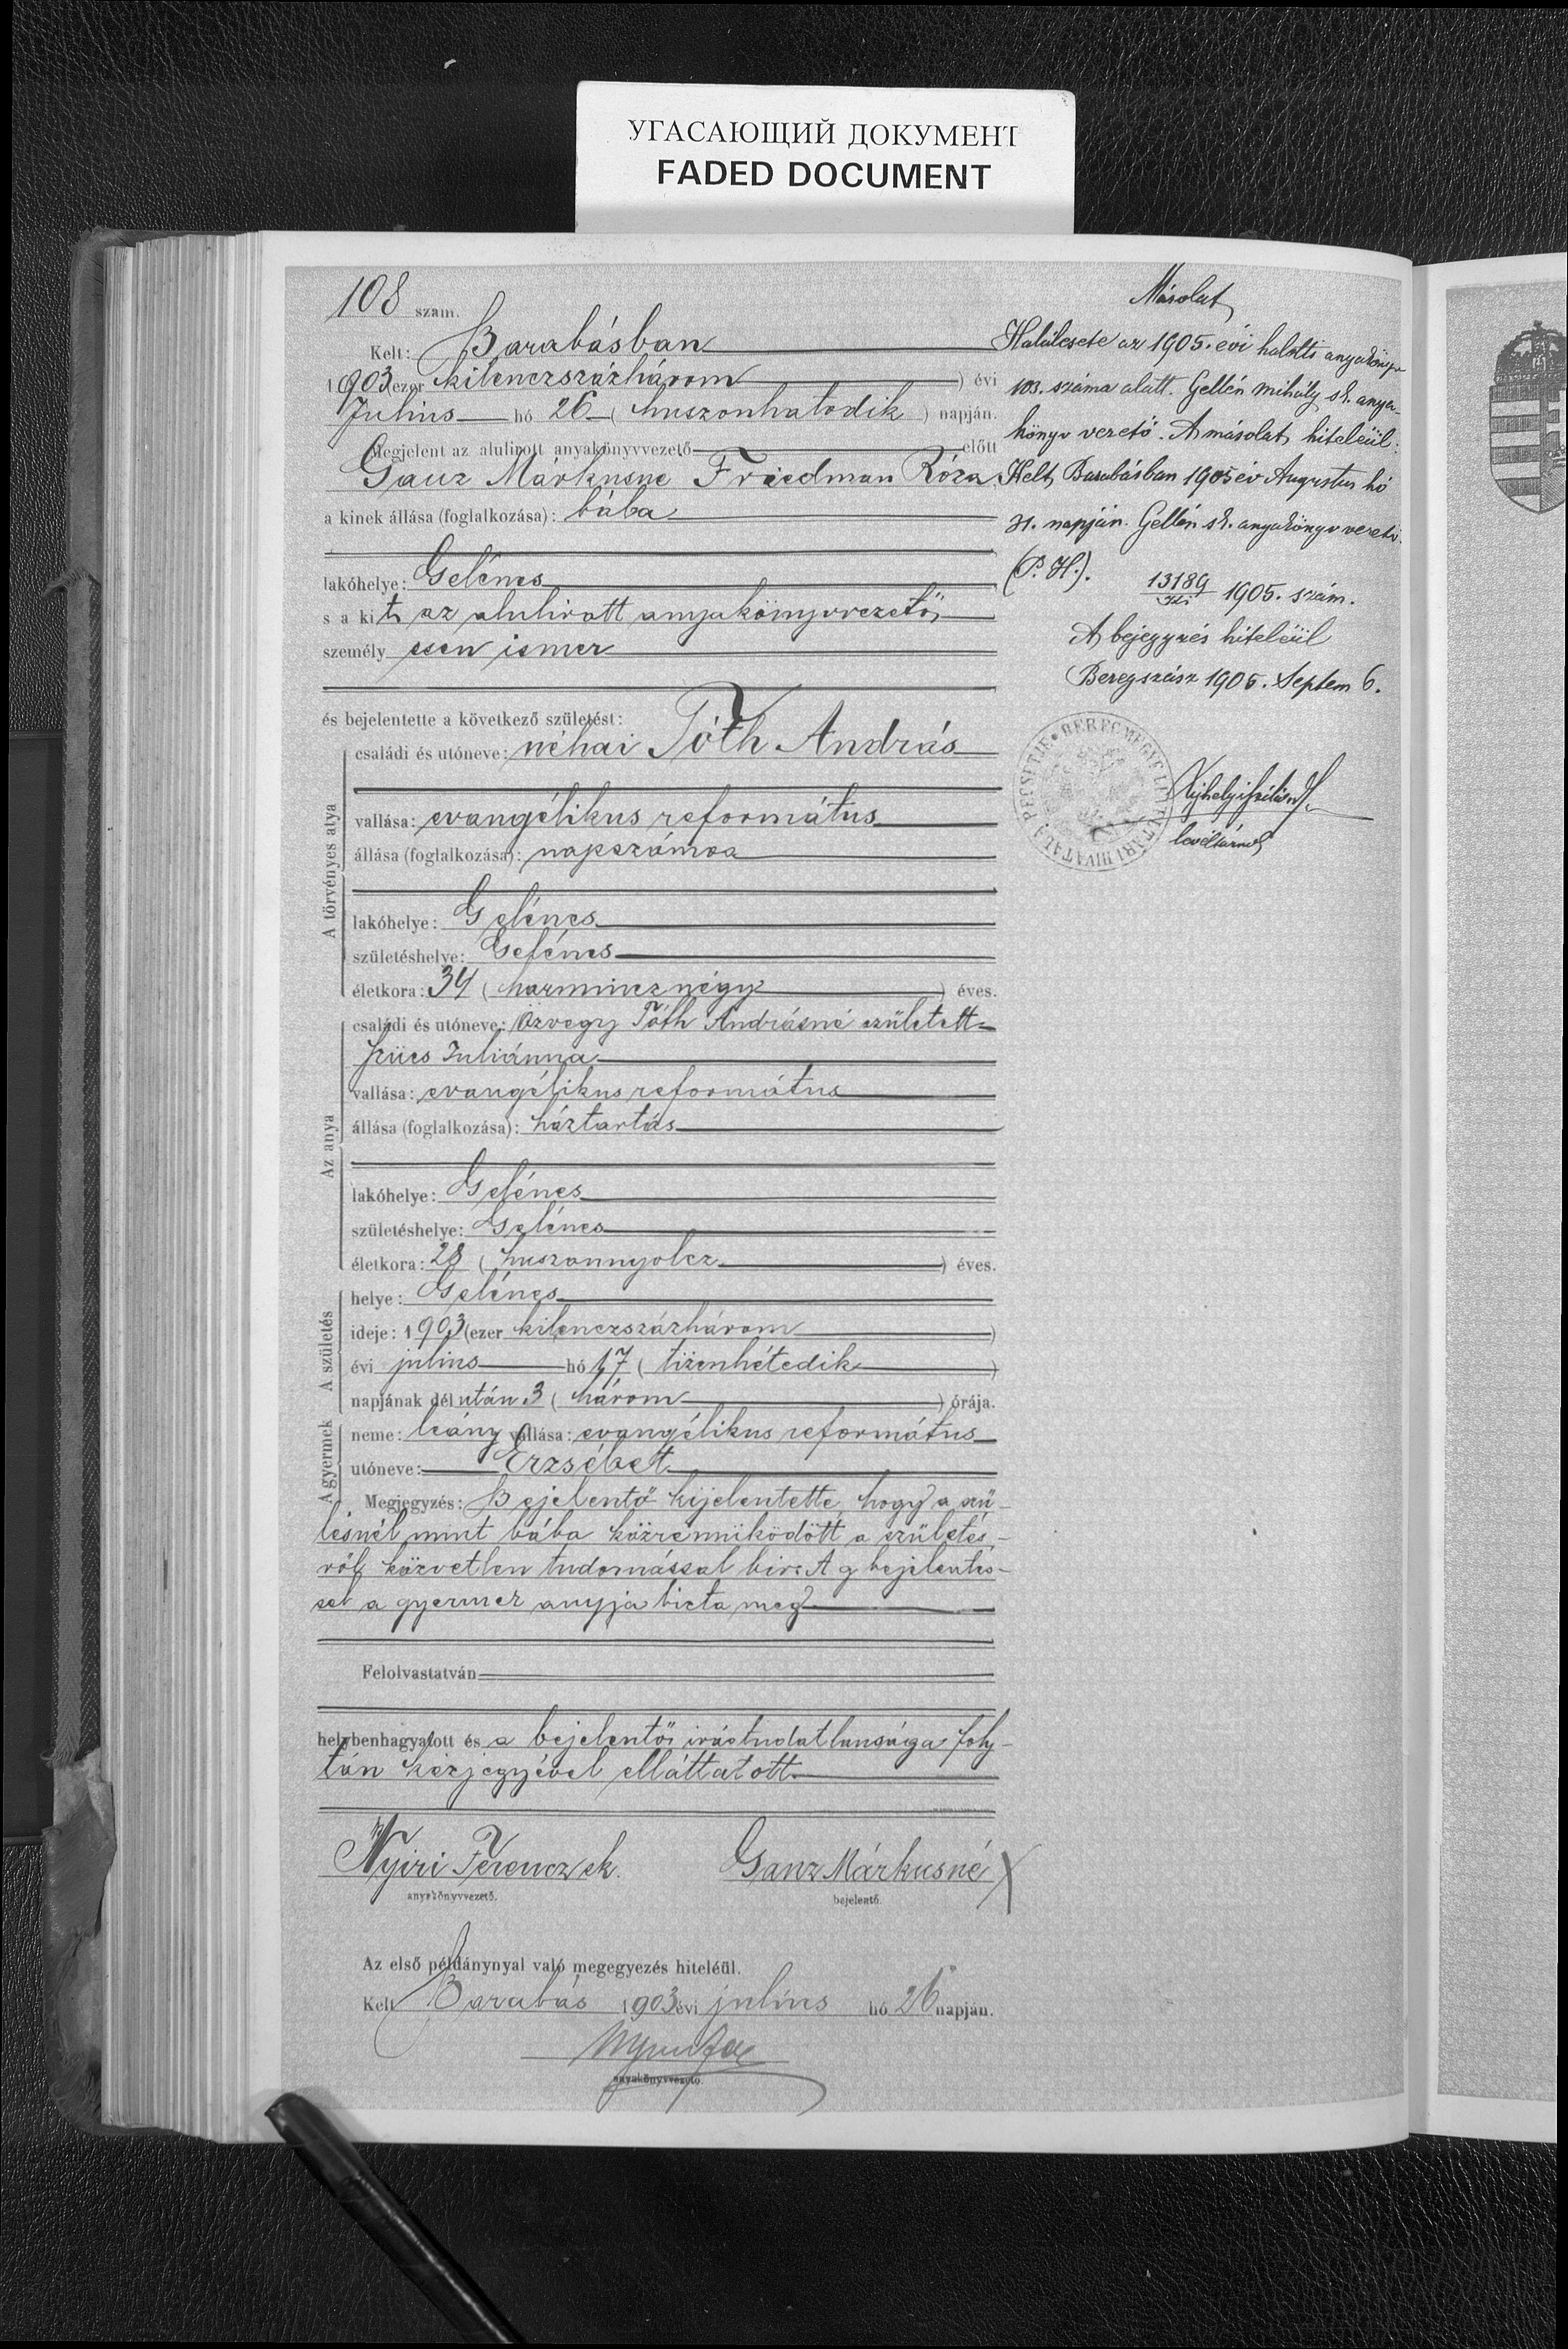 УГАСАЮЩИЙ ДОКУМЕНТ
FADED DOCUMENT
108 szám.
Kelt: Barabásban
1903 (ezer kilenczszázhárom ) évi
Julius hó 26 ( huszonhatodik ) napján.
Megjelent az alulirott anyakönyvvezető előtt
Ganz Márkusne Friedman Róza
a kinek állása (foglalkozása): bába
lakóhelye: Gelénes
s a kit az alulirott anyakönyvvezető
személyesen ismer
és bejelentette a következő születést:
A törvényes atya
családi és utóneve: néhai Tóth András
vallása: evangélikus református
állása (foglalkozása): napszámos
lakóhelye: Gelénes
születéshelye: Gelénes
életkora: 34 ( harmincznégy ) éves.
Az anya
családi és utóneve: özvegy Tóth Andrásné született
Szücs Juliánna
vallása: evangélikus református
állása (foglalkozása): háztartás
lakóhelye: Gelénes
születéshelye: Gelénes
életkora: 28 ( huszonnyolcz ) éves.
A születés
helye: Gelénes
ideje: 1903 (ezer kilenczszázhárom )
évi julius hó 17 ( tizenhétedik )
napjának délután 3 ( három ) órája.
A gyermek
neme: leány vallása: evangélikus református
utóneve: Erzsébet
Megjegyzés: Bejelentő kijelentette, hogy a szü-
lésnél mint bába közremüködött a születés-
ről közvetlen tudomással bir. A bejelentés-
sel a gyermek anyja bizta meg
Felolvastatván
helybenhagyatott és a bejelentő irástudatlansága foly-
tán kézjegyével elláttatott.
Nyiri Ferencz sk. Ganz Márkusné X
anyakönyvvezető. bejelentő.
Az első példánynyal való megegyezés hiteléül.
Kelt Barabás 1903 évi julius hó 26 napján.
anyakönyvvezető.
Másolat
Halálesete az 1905. évi halotti anyakönyv
103. száma alatt. Gellén Mihály sk. anya-
könyv vezető. A másolat hiteléül:
Kelt, Barabásban 1905 év Augustus hó
31. napján. Gellén sk. anyakönyv vezető.
(P. H.). 13189 1905. szám.
A bejegyzés hiteléül
Beregszász 1905. Septem 6.
BEREGMEGYE LEVÉLTÁRI HIVATALA PECSÉTJE
levéltárnok